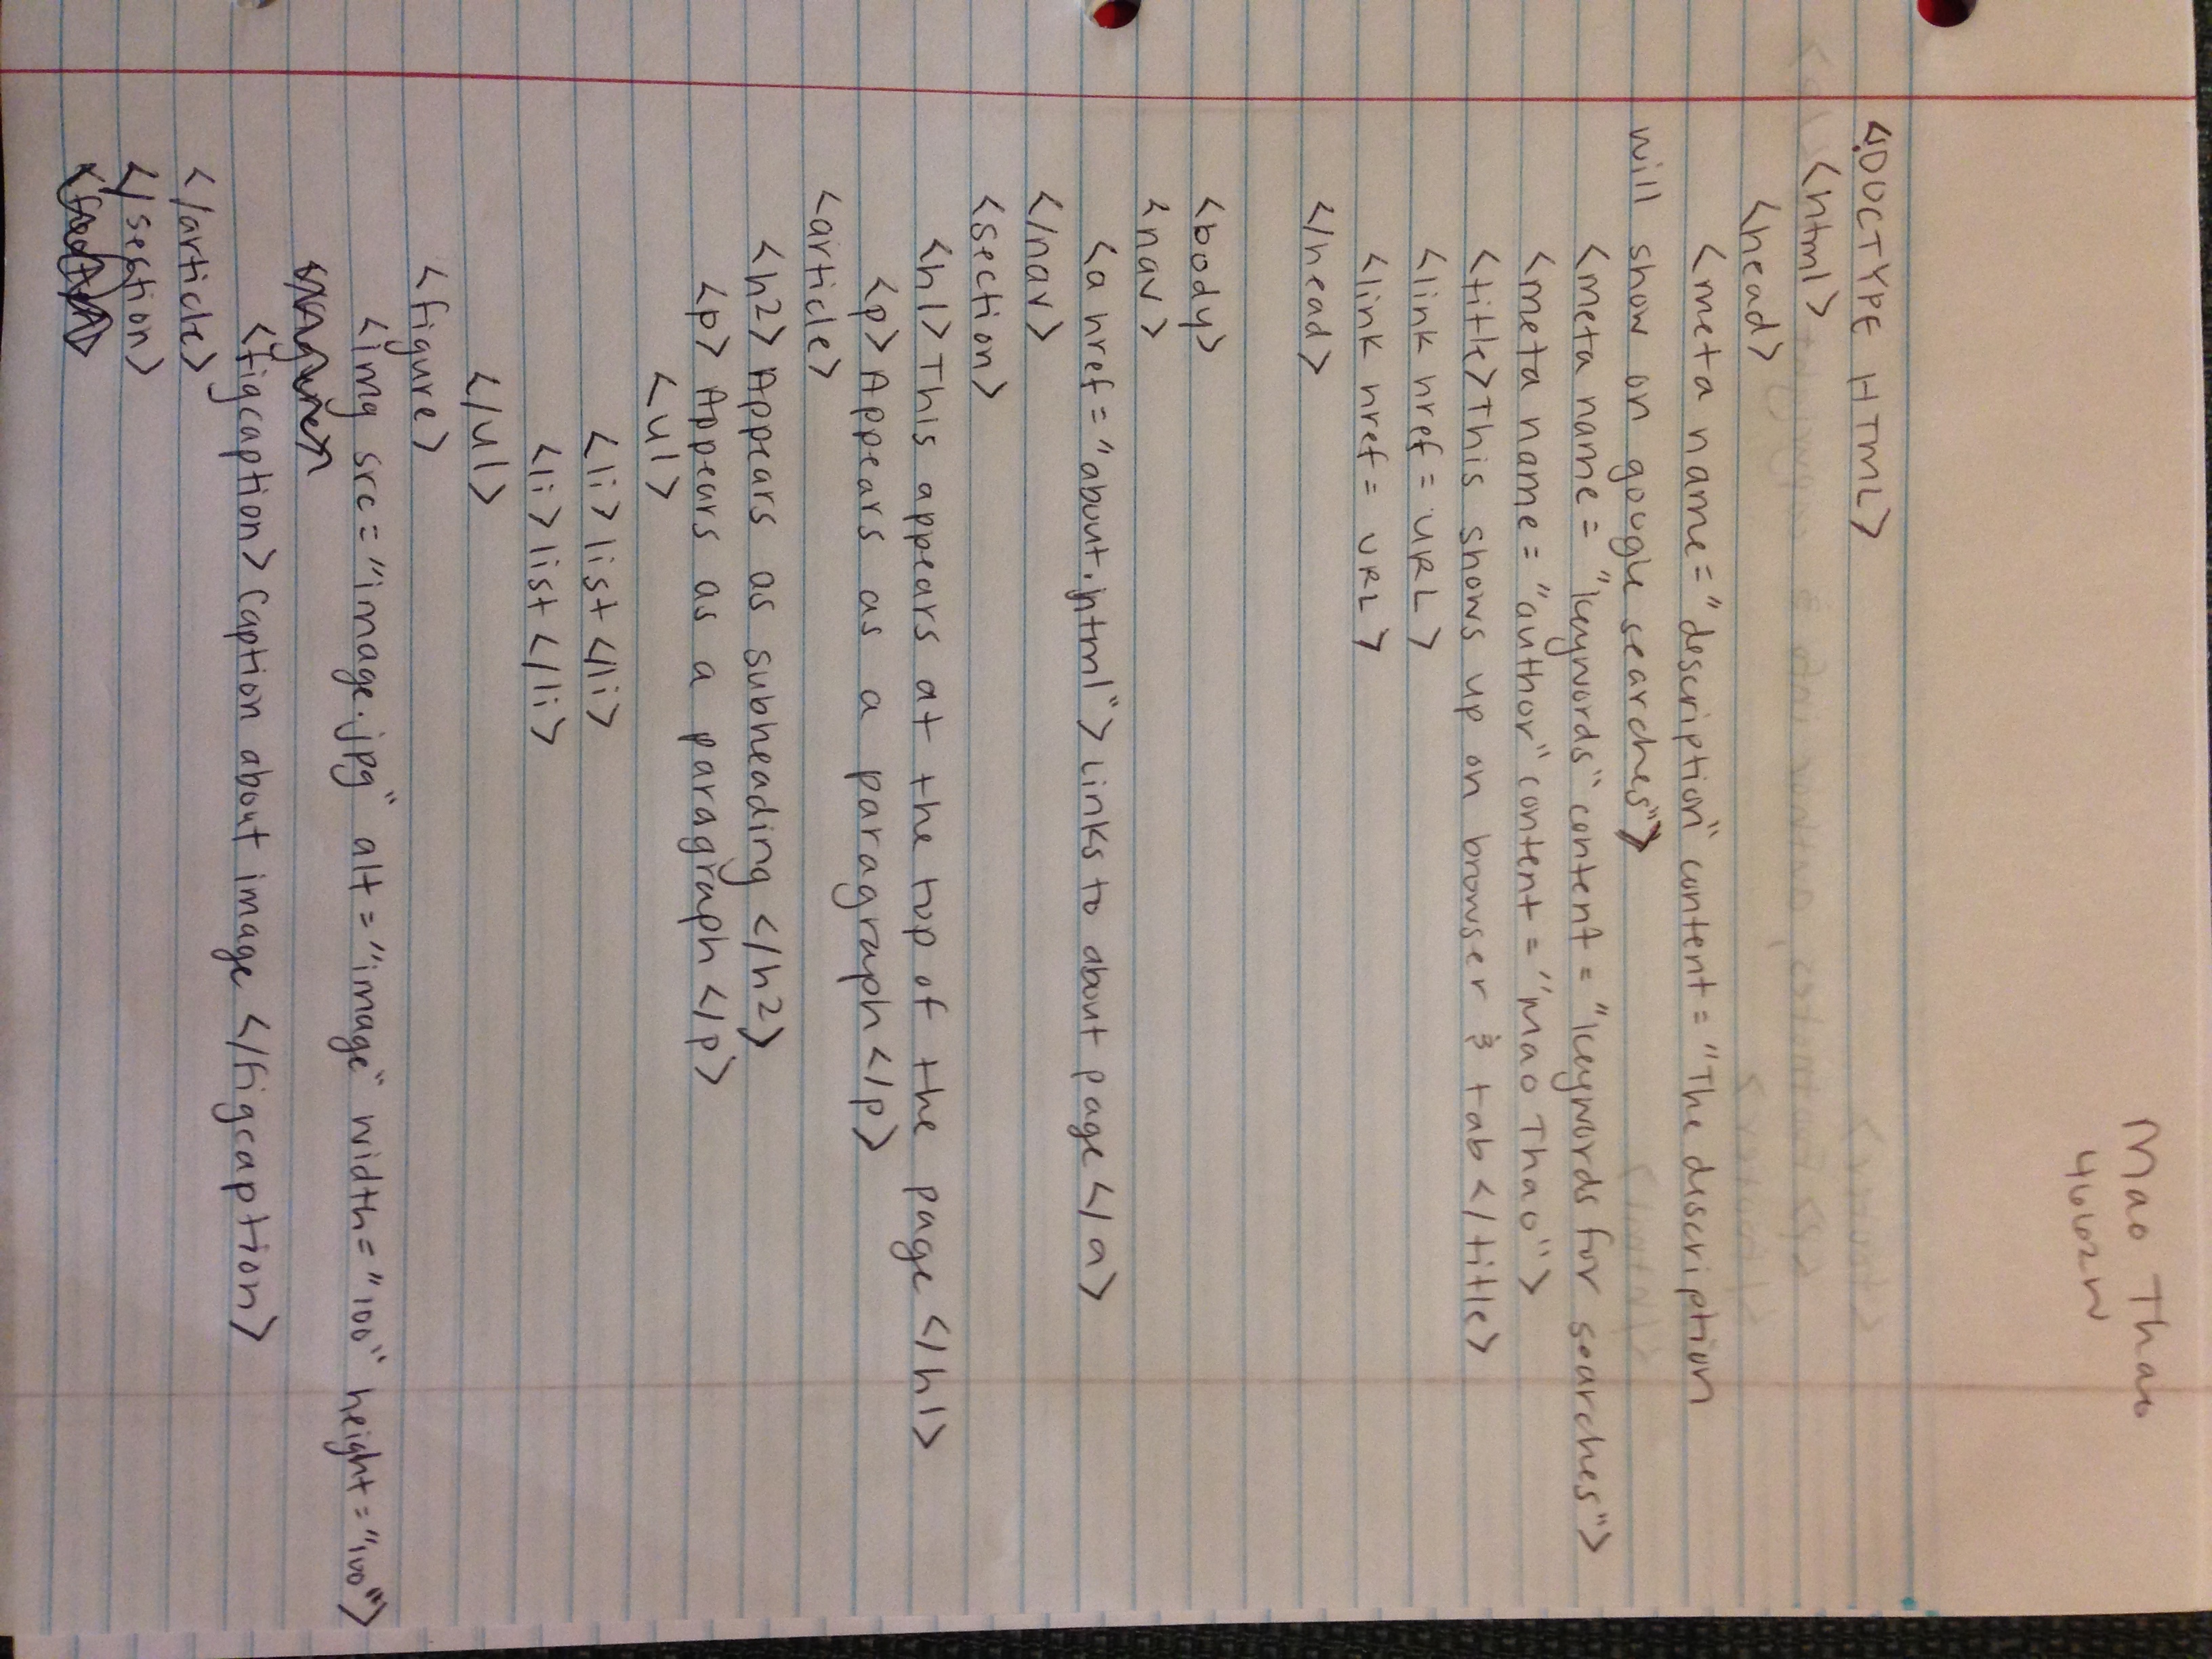 Mao Thao
4662W
<!DOCTYPE HTML>
<html>
<head>
<meta name="description" content="The description
will show on google searches">
<meta name="keywords" content="keywords for searches">
<meta name="author" content="Mao Thao">
<title>This shows up on browser & tab</title>
<link href=URL>
<link href=URL>
</head>
<body>
<nav>
<a href="about.html">Links to about page</a>
</nav>
<section>
<h1>This appears at the top of the page</h1>
<p>Appears as a paragraph</p>
<article>
<h2>Appears as subheading</h2>
<p>Appears as a paragraph</p>
<ul>
<li>list</li>
<li>list</li>
</ul>
<figure>
<img src="image.jpg" alt="image" width="100" height="100">
<figcaption>Caption about image</figcaption>
</article>
</section>